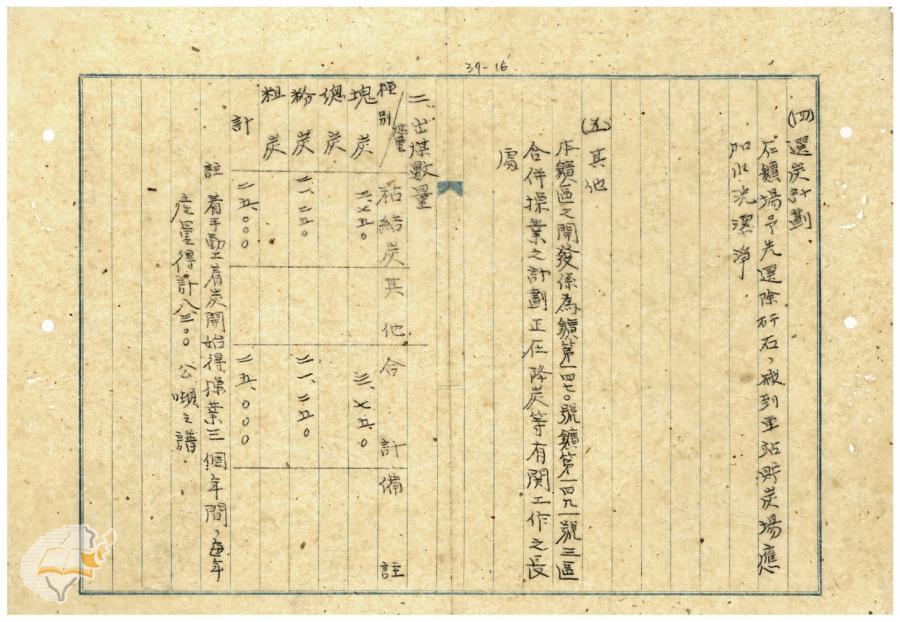 39-16
(四) 選炭計劃
在鑛場予先選除矸石，搬到車站貯炭場應
加水洗潔淨．
(五) 其他
本鑛區之開發係為鑛第一四七〇號鑛第一四九一號三區
合併操業之計劃正在降炭等有関工作之長
處
二、出煤數量
種別/產量 粘結炭 其他 合計 備註
塊炭 三、七五〇 三、七五〇
總炭
粉炭 二一、二五〇 二一、二五〇
粗炭
計 二五、〇〇〇 二五、〇〇〇
註 着手動工着炭開始得操業三個年間，每年
產量得計八三〇〇 公噸之譜．